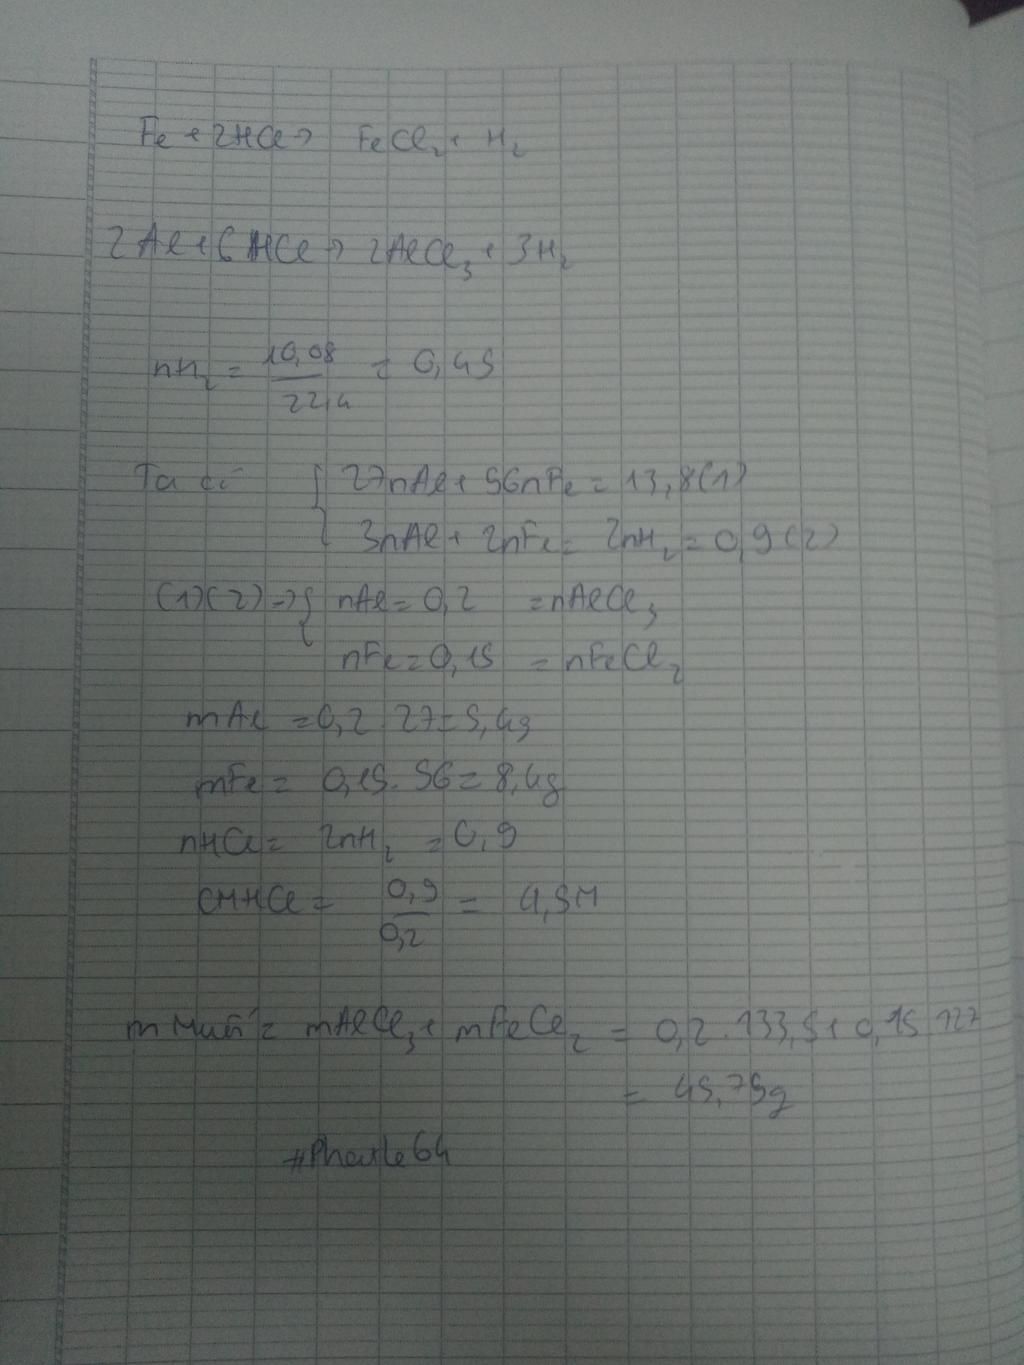 Fe + 2HCl → FeCl₂ + H₂
2Al + 6HCl → 2AlCl₃ + 3H₂
nH₂ = 10,08 / 22,4 = 0,45
Ta có { 27nAl + 56nFe = 13,8 (1)
3nAl + 2nFe = 2nH₂ = 0,9 (2)
(1)(2) → { nAl = 0,2 = nAlCl₃
nFe = 0,15 = nFeCl₂
mAl = 0,2 . 27 = 5,4g
mFe = 0,15 . 56 = 8,4g
nHCl = 2nH₂ = 0,9
CMHCl = 0,9 / 0,2 = 4,5M
m Muối = mAlCl₃ + mFeCl₂ = 0,2 . 133,5 + 0,15 . 127
= 45,75g